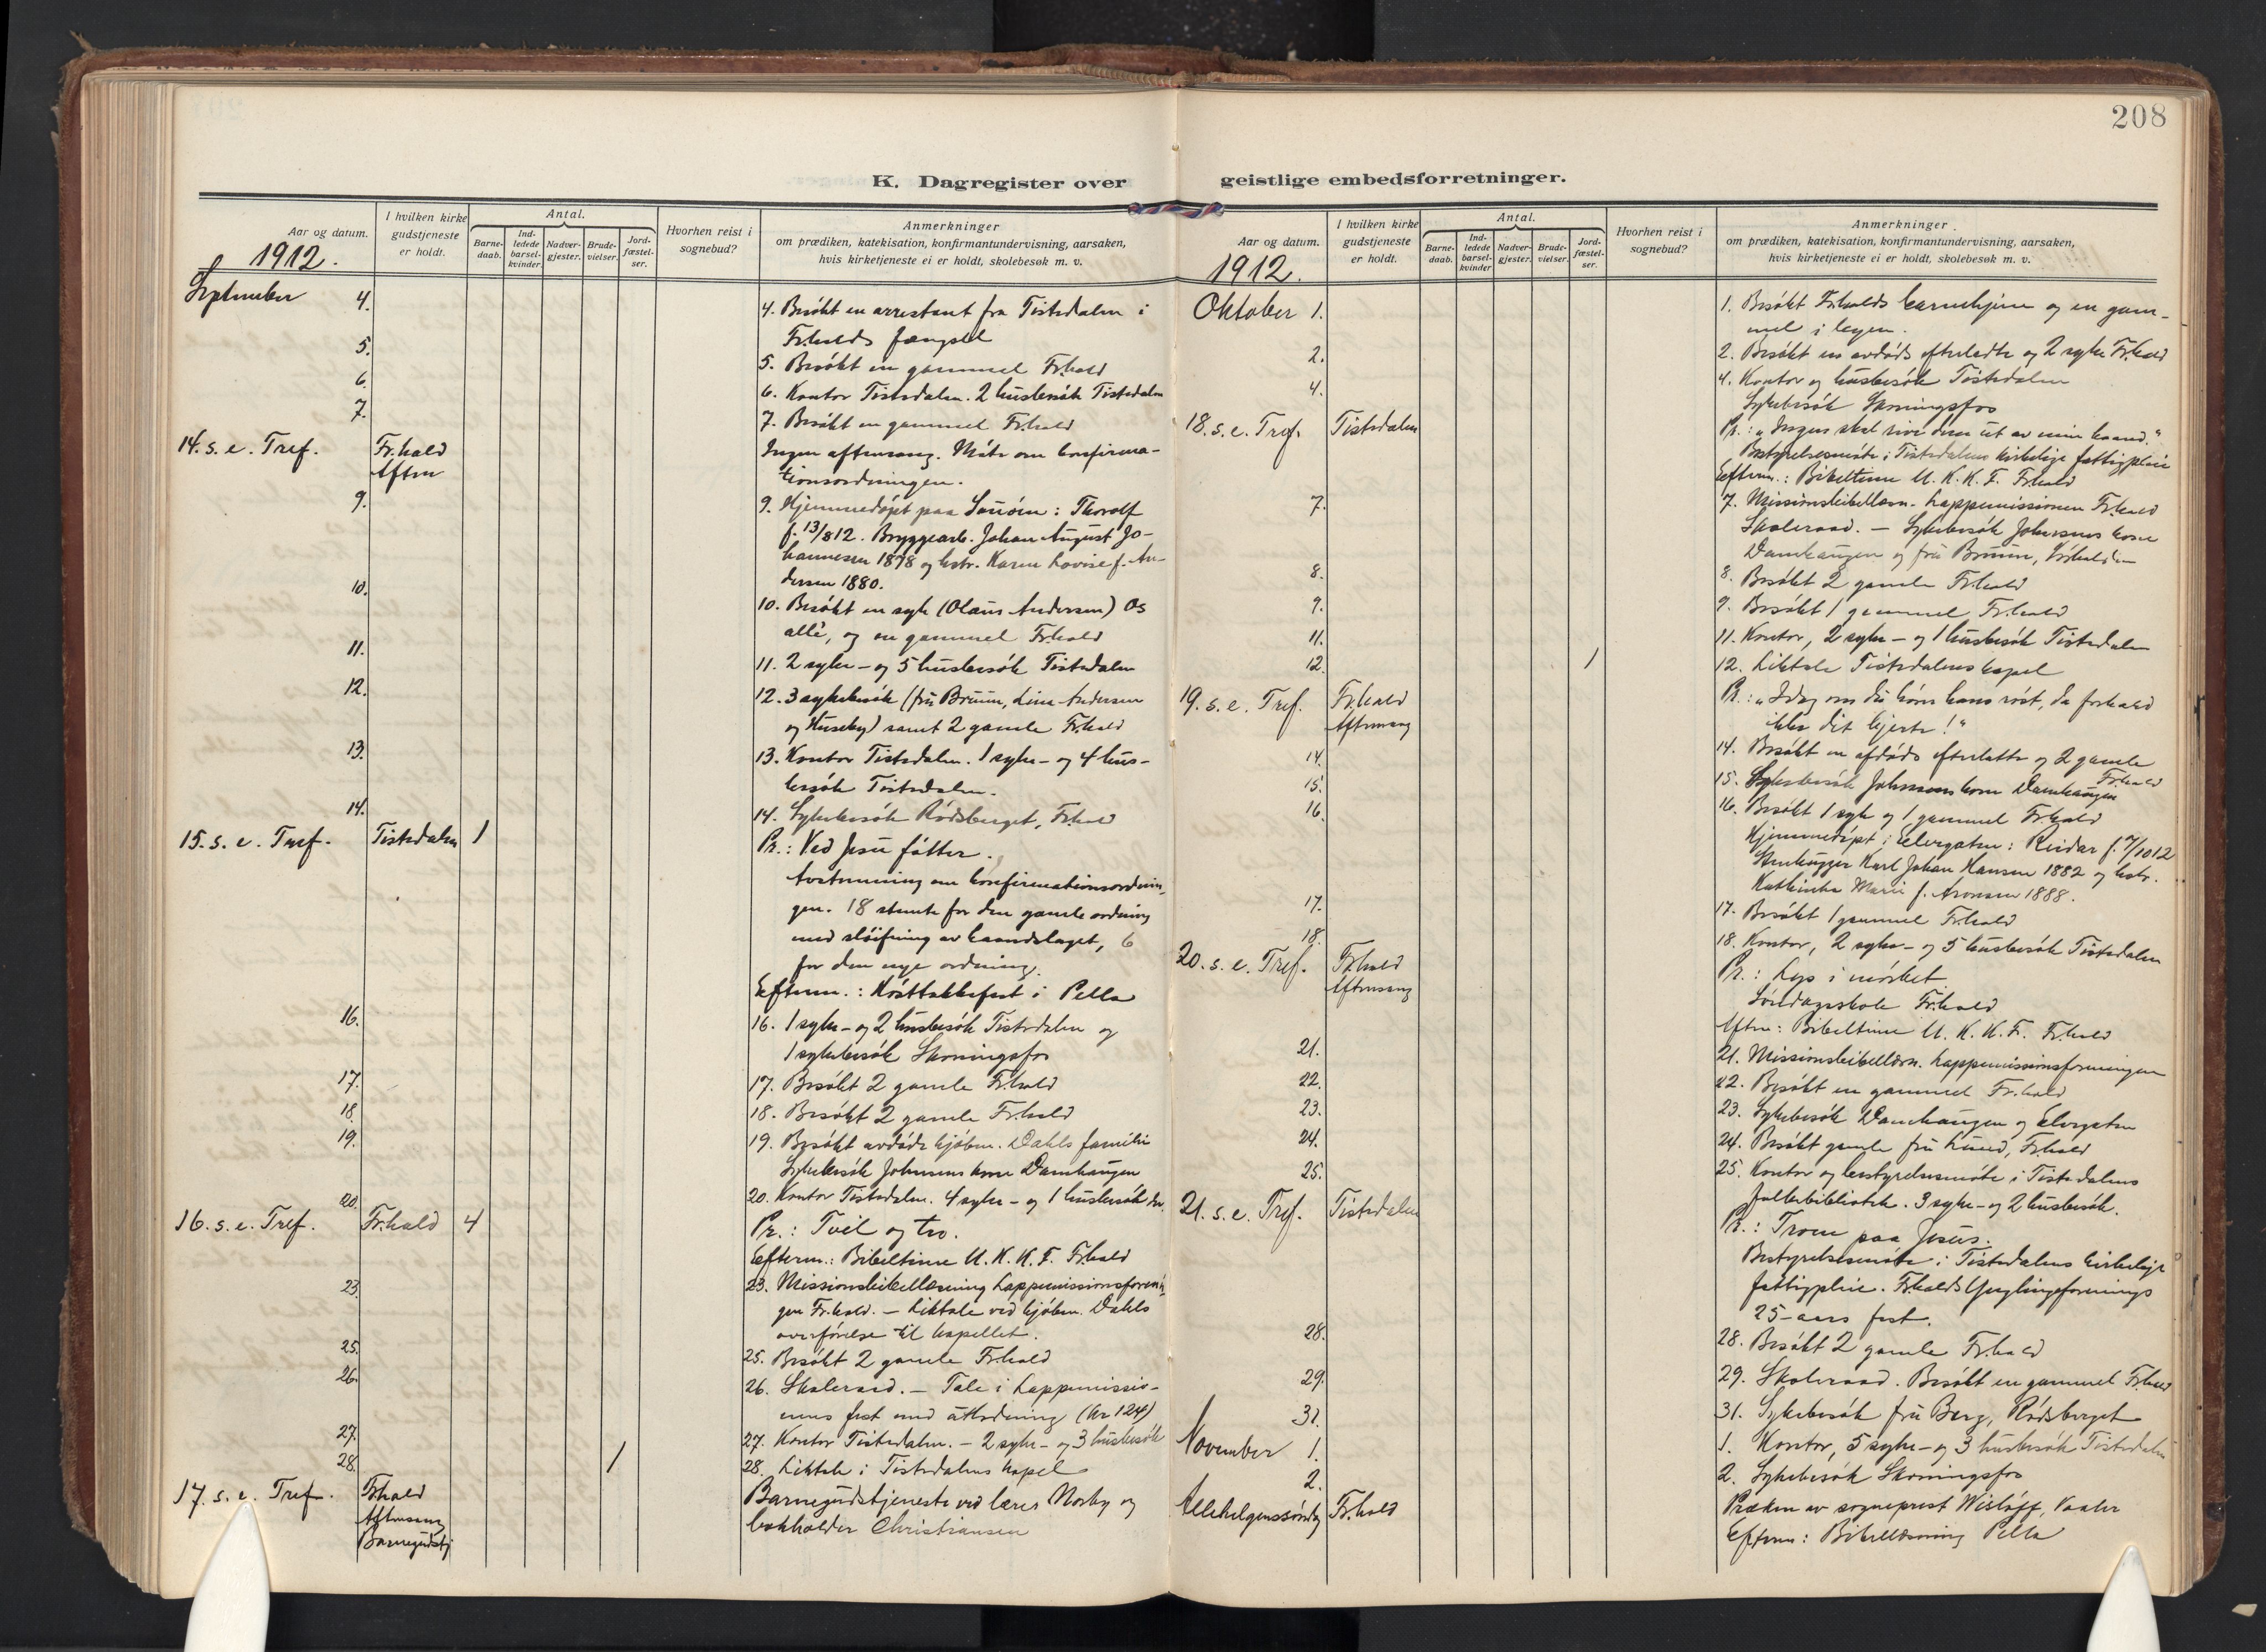 208
K. Dagregister over geistlige embedsforretninger.
Aar og datum.
I hvilken kirke gudstjeneste er holdt.
Antal.
Barne-daab.
Ind-ledede barsel-kvinder.
Nadver-gjester.
Brude-vielser.
Jord-fæstel-ser.
Hvorhen reist i sognebud?
Anmerkninger
om prædiken, katekisation, konfirmantundervisning, aarsaken,
hvis kirketjeneste ei er holdt, skolebesøk m. v.
1912.
September 4. 4. Besøkt en arrestant fra Tistedalen i
Fr.halds fængsel
5. 5. Besøkt en gammel Fr.hald
6. 6. Kontor Tistedalen. 2 husbesøk Tistedalen
7. 7. Besøkt en gammel Fr.hald
14. s. e. Tref. Fr.hald Ingen aftensang. Møte om konfirma-
Aften tionsordningen.
9. 9. Hjemmedøpt paa Sauøen: Thorolf
f. 13/8 12. Bryggearb. Johan August Jo-
hannesen 1878 og hstr. Karen Lovise f. An-
dersen 1880.
10. 10. Besøkt en syk (Olaus Andersen) Os
allé, og en gammel Fr.hald
11. 11. 2 syke- og 5 husbesøk Tistedalen
12. 12. 3 sykebesøk (fru Bruun, Line Andersen
og Huseby) samt 2 gamle Fr.hald
13. 13. Kontor Tistedalen. 1 syke- og 4 hus-
besøk Tistedalen.
14. 14. Sykebesøk Rødsberget, Fr.hald
15. s. e. Tref. Tistedalen 1 Pr.: Ved Jesu føtter.
Avstemning om konfirmationsordnin-
gen. 18 stemte for den gamle ordning
med sløifning av haandslaget, 6
for den nye ordning.
Efterm.: Høsttakkefest i Pella
16. 16. 1 syke- og 2 husbesøk Tistedalen og
1 sykebesøk Skoningsfos
17. 17. Besøkt 2 gamle Fr.hald
18. 18. Besøkt 2 gamle Fr.hald
19. 19. Besøkt avdøde kjøbm. Dahls familie
Sykebesøk Johnsens kone Damhaugen
20. 20. Kontor Tistedalen. 4 syke- og 1 husbesøk
16. s. e. Tref. Fr.hald 4 Pr.: Tvil og tro.
Efterm.: Bibeltime U. K. K. F. Fr.hald
23. 23. Missionsbibellæsning Lappemissionsforenin-
gen Fr.hald. - Liktale ved kjøbm. Dahls
overførelse til kapellet.
25. 25. Besøkt 2 gamle Fr.hald
26. 26. Skoleraad. - Tale i Lappemissio-
nens fest med utlodning (kr 124)
27. 27. Kontor Tistedalen. - 2 syke- og 3 husbesøk
28. 1 28. Liktale i Tistedalens kapel
17. s. e. Tref. Fr.hald Barnegudstjeneste ved lærer Norby og
Aftensang bokholder Christiansen
Barnegudstj
Aar og datum.
I hvilken kirke gudstjeneste er holdt.
Antal.
Barne-daab.
Ind-ledede barsel-kvinder
Nadver-gjester.
Brude-vielser.
Jord-fæstel-ser.
Hvorhen reist i sognebud?
Anmerkninger.
om prædiken, katekisation, konfirmantundervisning, aarsaken,
hvis kirketjeneste ei er holdt, skolebesøk m. v.
1912.
Oktober 1. 1. Besøkt Fr.halds barnehjem og en gam-
mel i byen.
2. 2. Besøkt en avdøds efterladte og 2 syke Fr.hald
4. 4. Kontor og husbesøk Tistedalen
Sykebesøk Skoningsfos
18. s. e. Tref. Tistedalen Pr.: "Ingen skal rive dem ut av min haand."
Bestyrelsesmøte i Tistedalens kirkelige fattigpleie
Efterm.: Bibeltime U. K. K. F. Fr.hald
7. 7. Missionsbibellæsn. Lappemissionen Fr.hald
Skoleraad. - Sykebesøk Johnsens kone
Damhaugen og fru Bruun,
8. 8. Besøkt 2 gamle Fr.hald
9. 9. Besøkt 1 gammel Fr.hald
11. 11. Kontor, 2 syke- og 1 husbesøk Tistedalen
12. 1 12. Liktale Tistedalens kapel
19. s. e. Tref. Fr.hald Pr.: "Idag om du hører hans røst, da forhærd
Aftensang ikke dit hjerte!"
14. 14. Besøkt en afdøds efterlatte og 2 gamle
Fr.hald
15. 15. Sykebesøk Johnsens kone Damhaugen
16. 16. Besøkt 1 syk og 1 gammel Fr.hald
Hjemmedøpt i Elvegaten: Reidar f. 7/10 12
Stenhugger Karl Johan Hansen 1882 og hstr.
Kathinka Marie f. Aronsen 1888.
17. 17. Besøkt 1 gammel Fr.hald
18. 18. Kontor, 2 syke- og 5 husbesøk Tistedalen
20. s. e. Tref. Fr.hald Pr.: Lys i mørket
Aftensang Søndagsskole Fr.hald
Aften: Bibeltime U. K. K. F. Fr.hald
21. 21. Missionsbibellæsn. Lappemissionsforeningen
22. 22. Besøkt en gammel Fr.hald
23. 23. Sykebesøk Damhaugen og Elvegaten
24. 24. Besøkt gamle fru Lund, Fr.hald
25. 25. Kontor og bestyrelsesmøte i Tistedalens
folkebibliotek. 3 syke- og 2 husbesøk.
21. s. e. Tref. Tistedalen Pr.: Troen paa Jesus.
Bestyrelsesmøte i Tistedalens kirkelige
fattigpleie. Fr.halds Ynglingeforenings
25-aars fest.
28. 28. Besøkt 2 gamle Fr.hald
29. 29. Skoleraad. Besøkt en gammel Fr.hald
31. 31. Sykebesøk fru Berg, Rødsberget
November 1. 1. Kontor, 5 syke- og 3 husbesøk Tistedalen
2. 2. Sykebesøk Skoningsfos
Allehelgenssøndag Fr.hald Præken av sogneprest Wisløff, Vaaler
Efterm: Bibellæsning Pella